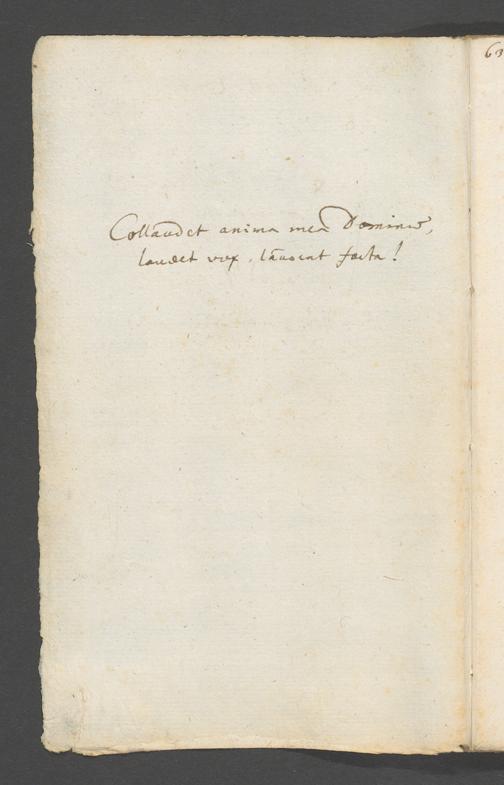 63
Collaudet anima mea Dominū,
laudet vox, laudent facta!